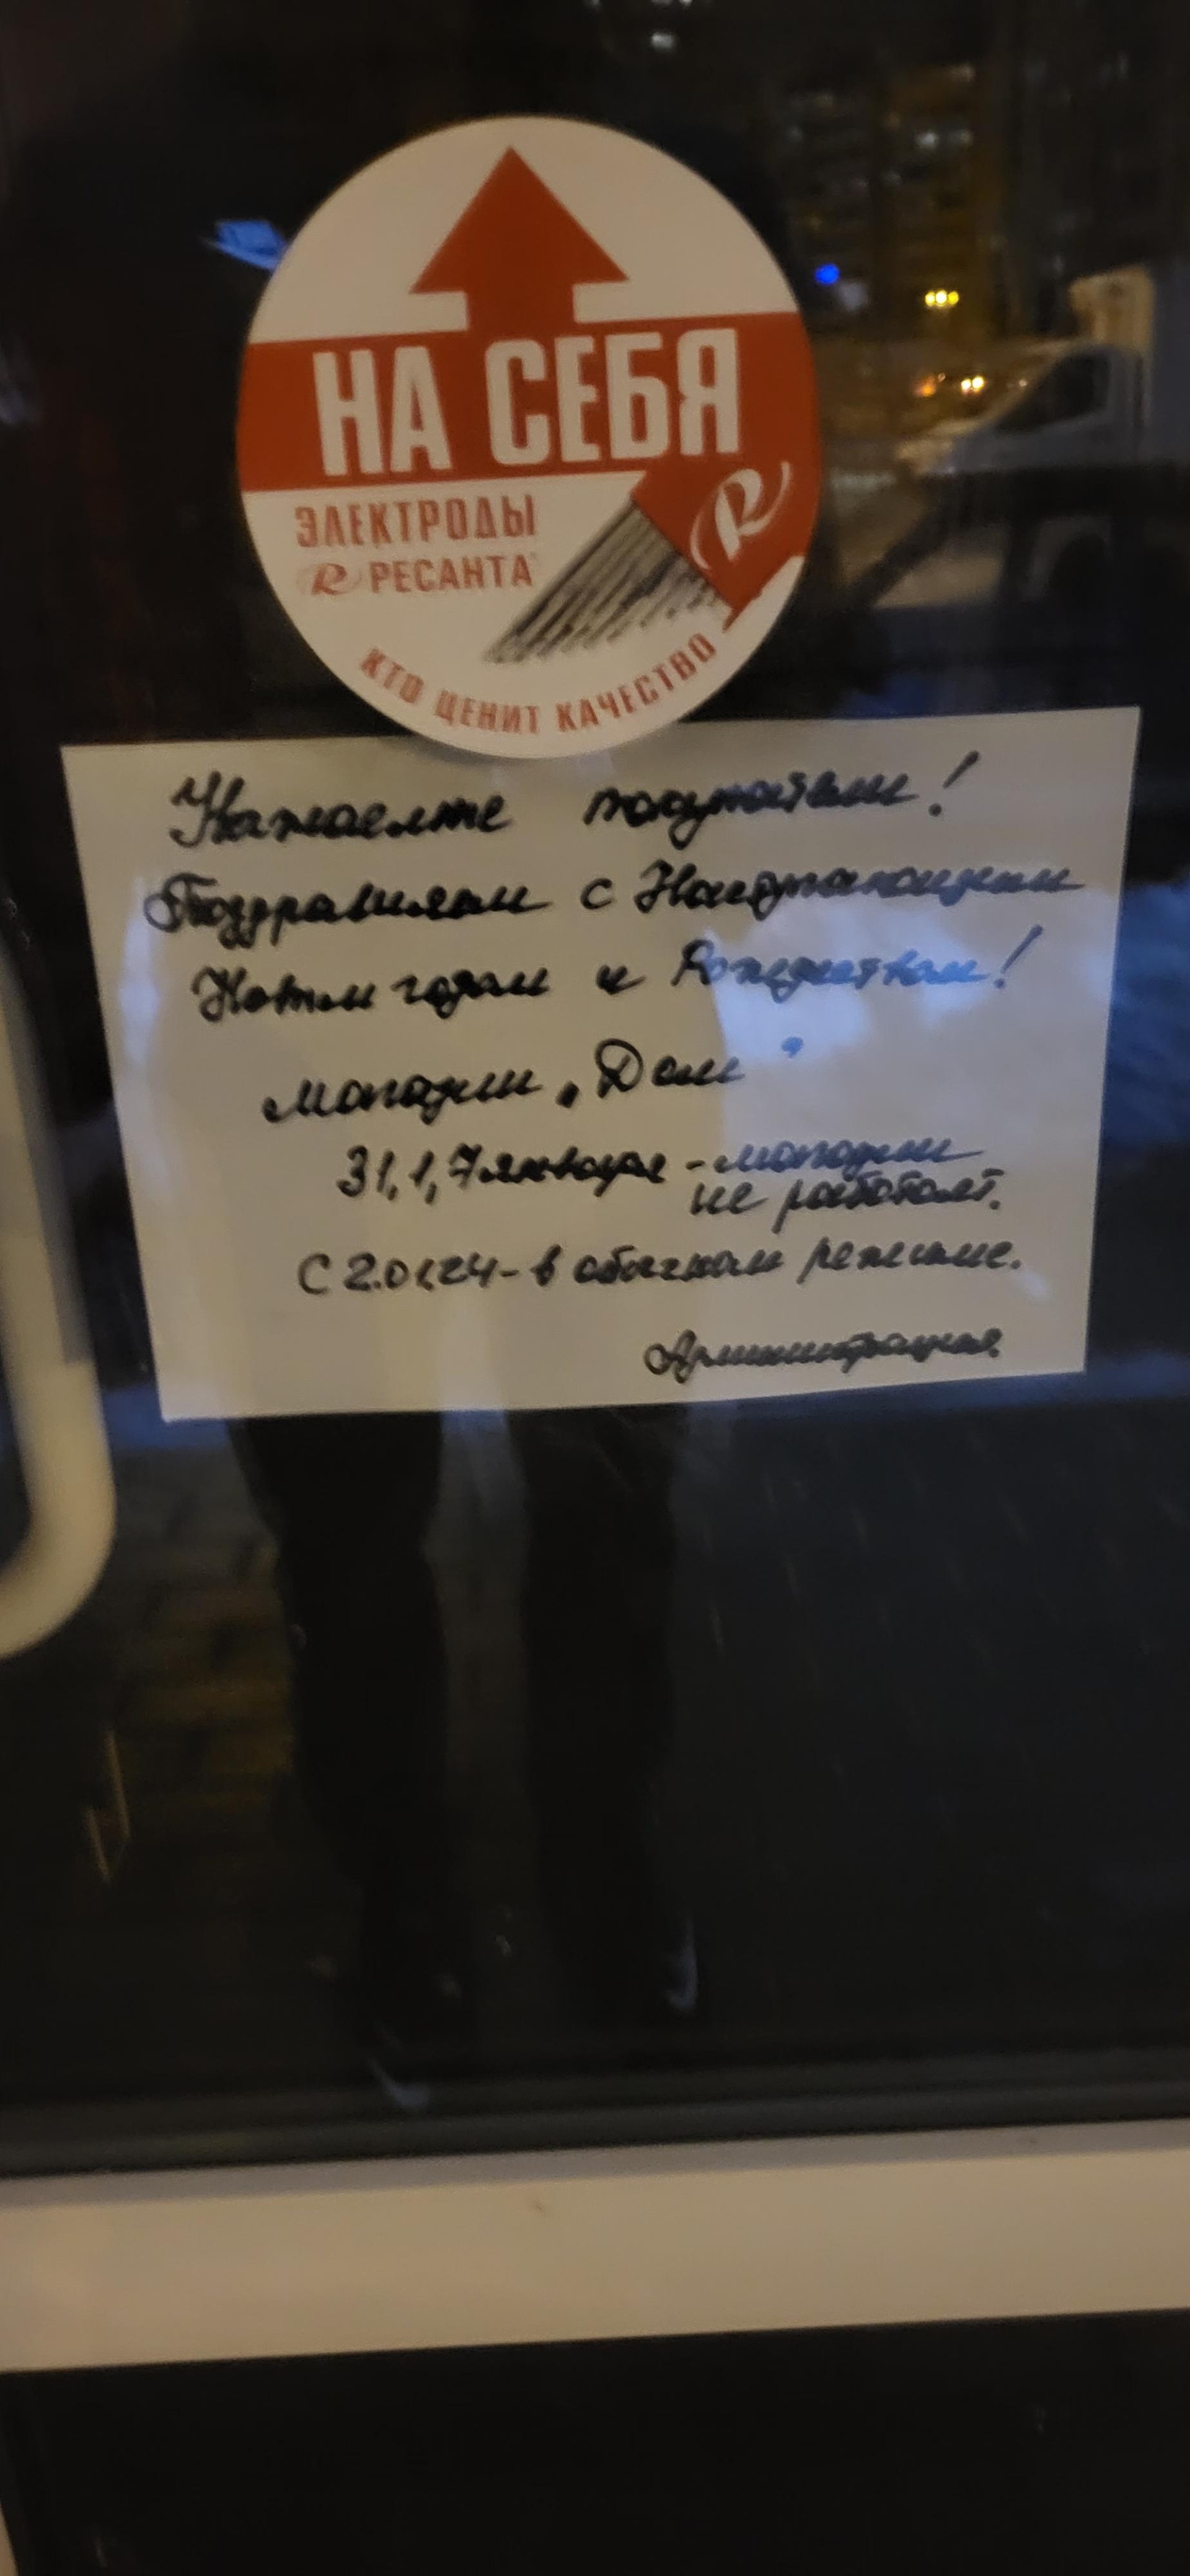 НА СЕБЯ
ЭЛЕКТРОДЫ
РЕСАНТА
КТО ЦЕНИТ КАЧЕСТВО
Уважаемые покупатели!
Поздравляем с Наступающим
Новым годом и Рождеством!
магазин „Дом"
31, 1, 7 января - магазин
не работает.
С 2.01.24 - в обычном режиме.
Администрация.